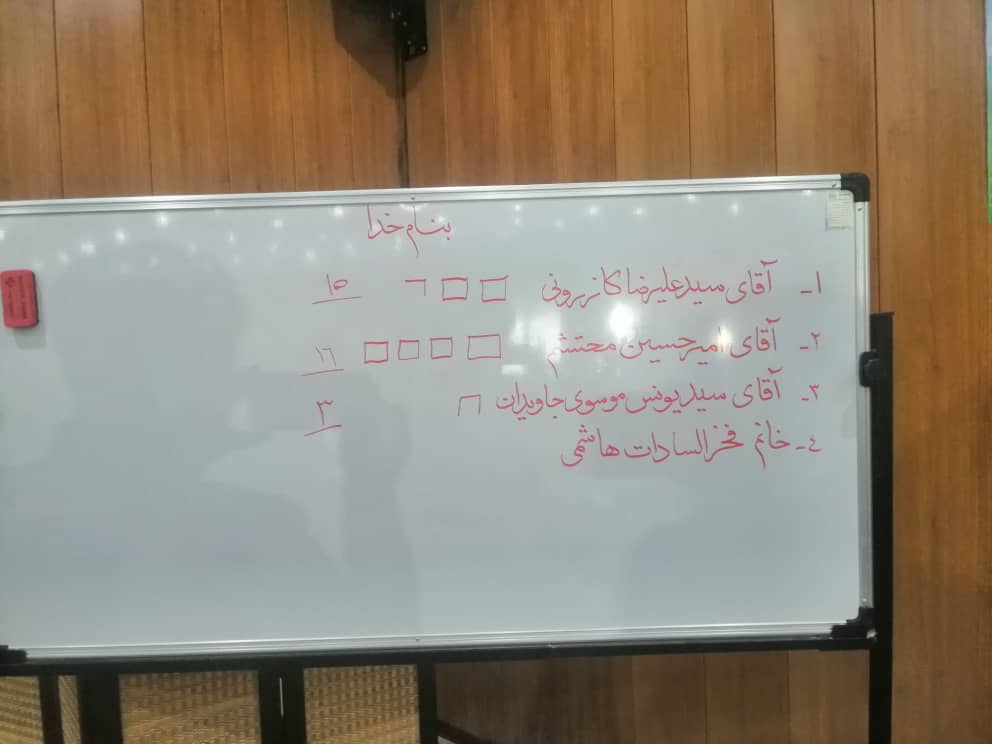 بنام خدا
۱- آقای سید علیرضا کازرونی ۱۵
۲- آقای امیرحسین محتشم ۱۶
۳- آقای سید یونس موسوی جاویدان ۳
۴- خانم فخرالسادات هاشمی